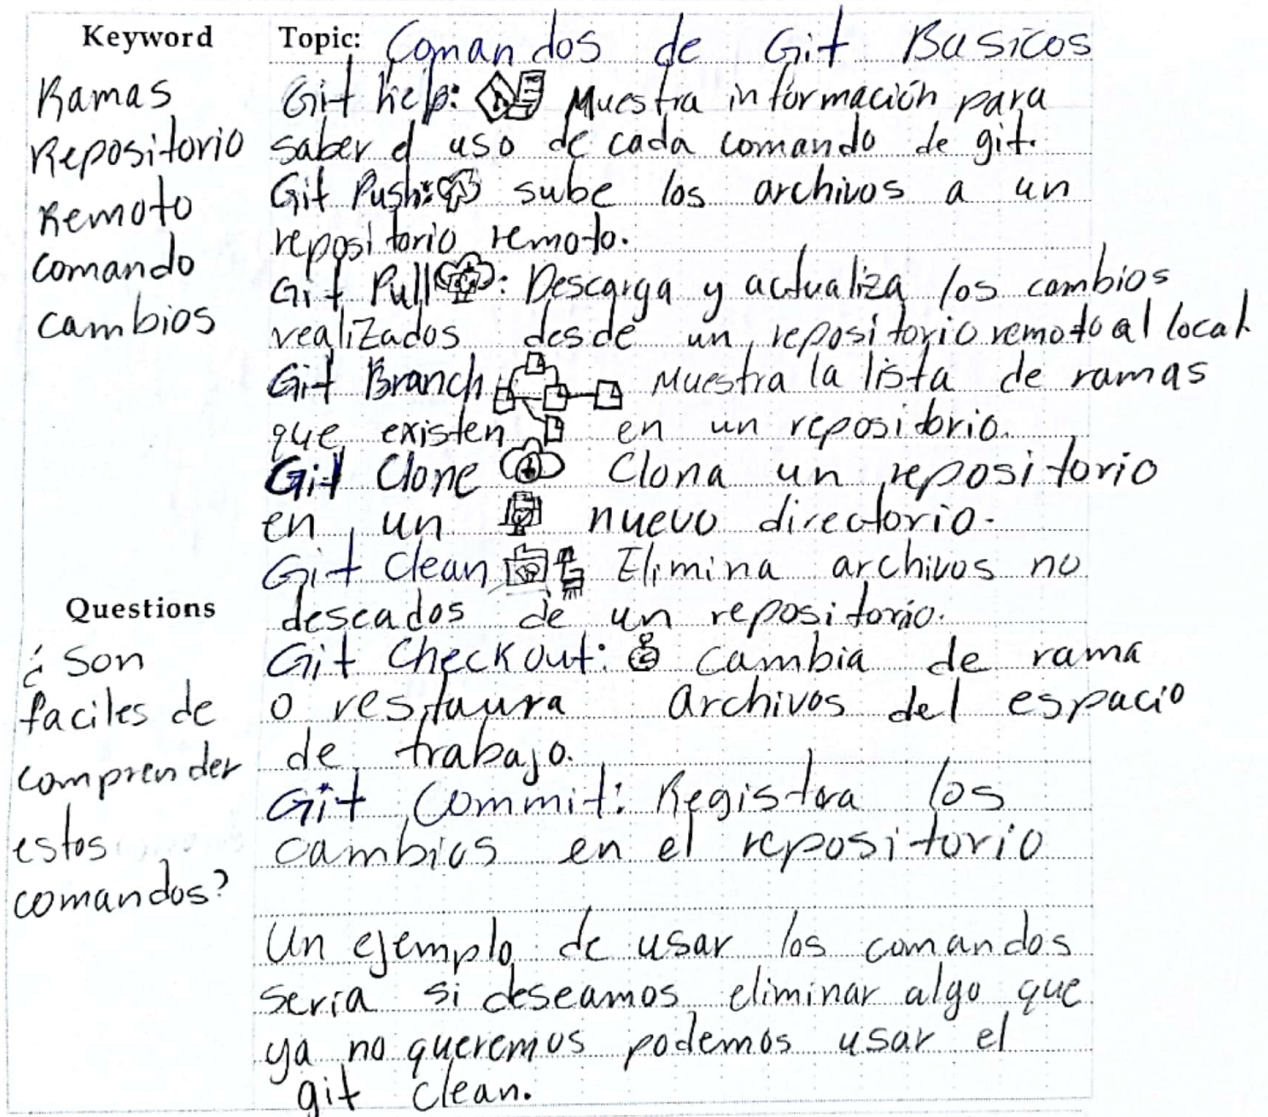 Keyword
Ramas
Repositorio
Remoto
comando
cambios
Questions
¿ Son
faciles de
comprender
estos
comandos?
Topic: Comandos de Git Basicos
Git help: Muestra información para
saber el uso de cada comando de git.
Git Push: sube los archivos a un
repositorio remoto.
Git Pull : Descarga y actualiza los cambios
realizados desde un repositorio remoto al local
Git Branch Muestra la lista de ramas
que existen en un repositorio.
Git Clone Clona un repositorio
en un nuevo directorio.
Git Clean Elimina archivos no
deseados de un repositorio.
Git Checkout: Cambia de rama
o restaura archivos del espacio
de trabajo.
Git Commit: Registra los
cambios en el repositorio
Un ejemplo de usar los comandos
seria si deseamos eliminar algo que
ya no queremos podemos usar el
git clean.